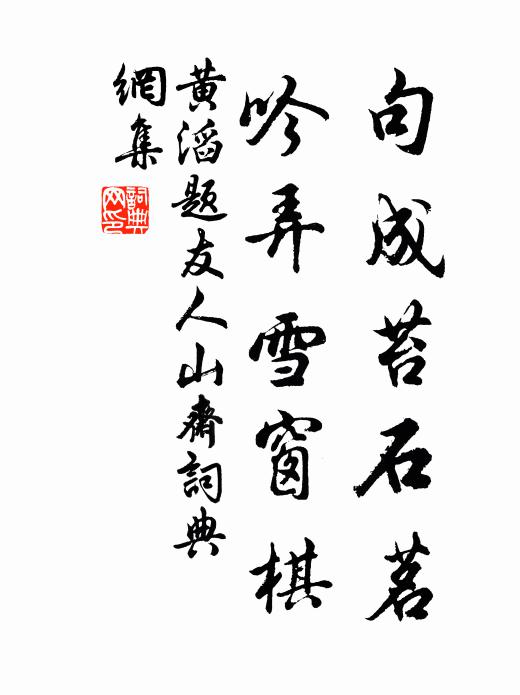 句成苔石茗
吟弄雪窗棋
黄滔題友人山齋詞典
網集
詞典網印